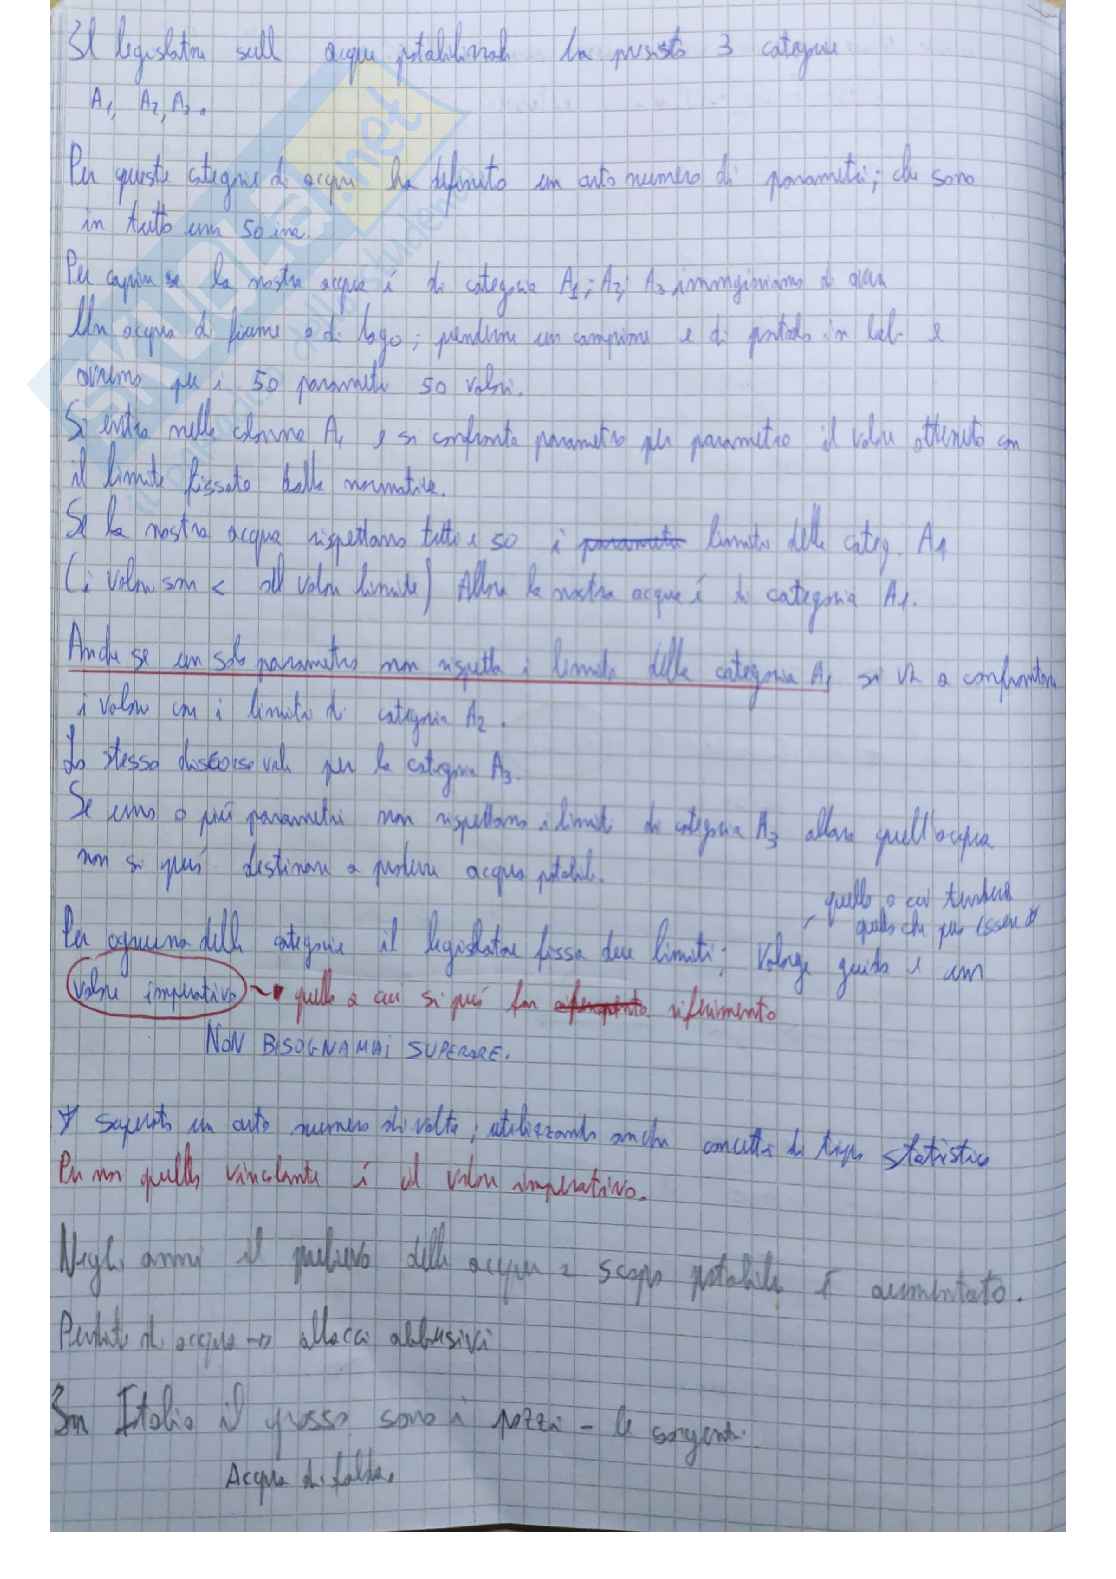 Il legislatore sulle acque potabilizzabili ha previsto 3 categorie
A1, A2, A3.
Per queste categorie di acqua ha definito un certo numero di parametri; che sono
in tutto una 50ina.
Per capire se la nostra acqua è di categoria A1; A2; A3 immaginiamo di avere
Un acqua di fiume o di lago; prendiamo un campione e di portarlo in lab. e
avremo per i 50 parametri 50 valori.
Si entra nella colonna A1 e si confronta parametro per parametro il valore ottenuto con
il limite fissato dalla normativa.
Se la nostra acqua rispettano tutti e 50 i parametri limiti della categ. A1
(i valori son < del valore limite) Allora la nostra acqua è di categoria A1.
Anche se un solo parametro non rispetta i limiti della categoria A1 si va a confrontare
i valori con i limiti di categoria A2.
Lo stesso discorso vale per la categoria A3.
Se uno o più parametri non rispettano i limiti di categoria A3 allora quell'acqua
non si può destinare a produrre acqua potabile.
quello a cui tendere
quello che può essere
Per ognuna delle categorie il legislatore fissa due limiti; Valore guida e un
valore imperativo → quello a cui si può far riferimento
NON BISOGNA MAI SUPERARE.
superato un certo numero di volte; utilizzando anche concetti di tipo statistico
Per noi quello vincolante è il valore imperativo.
Negli anni il prelievo delle acque a scopo potabile è aumentato.
Perdite di acqua → allacci abbusivi
In Italia il grosso sono i pozzi - le sorgenti.
Acqua di falda.
SKUOLA.net